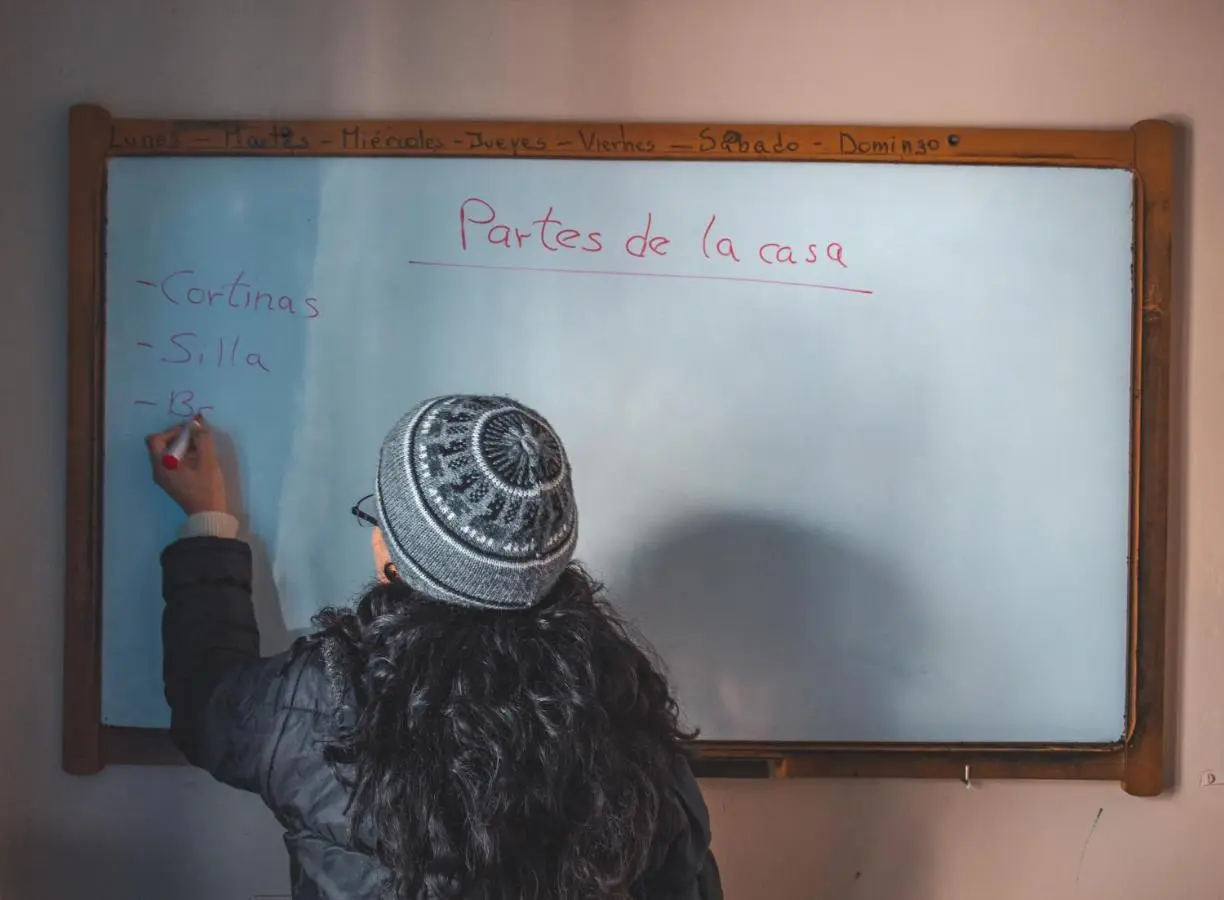 Lunes - Martes - Miércoles - Jueves - Viernes - Sábado - Domingo
Partes de la casa
- Cortinas
- Silla
- Ba